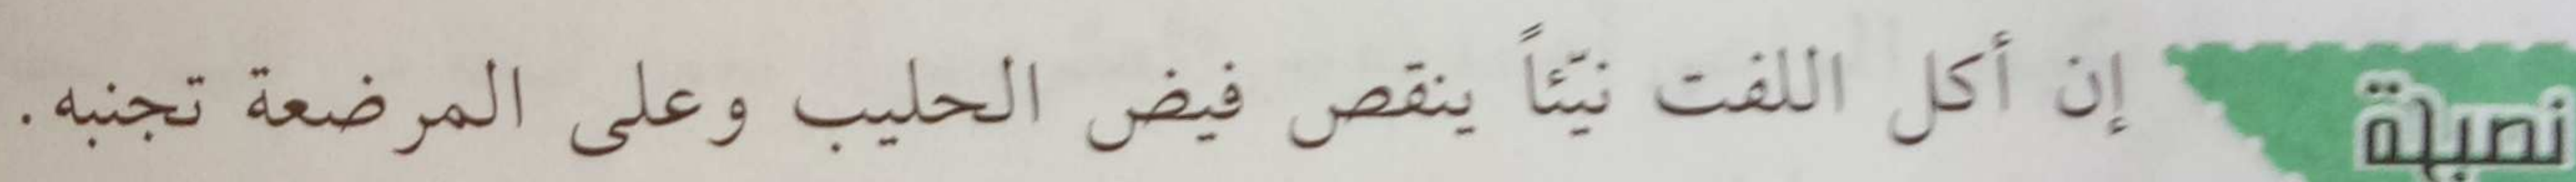 نصيحة إن أكل اللفت نيّئاً ينقص فيض الحليب وعلى المرضعة تجنبه.